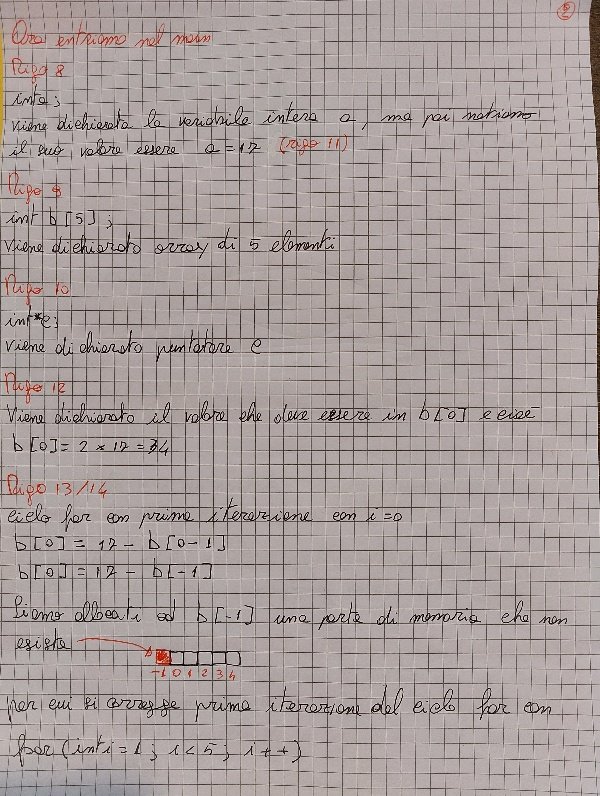 2
Ora entriamo nel main
Rigo 8
int a;
viene dichiarata la variabile intera a, ma poi notiamo
il suo valore essere a = 17 (rigo 11)
Rigo 9
int b[5];
viene dichiarato array di 5 elementi
Rigo 10
int*c;
viene dichiarato puntatore c
Rigo 12
Viene dichiarato il valore che deve essere in b[0] e cioè
b[0] = 2 * 17 = 34
Rigo 13/14
ciclo for con prima iterazione con i=0
b[0] = 17 - b[0-1]
b[0] = 17 - b[-1]
Siamo allocati ad b[-1] una parte di memoria che non
esiste
b
-1 0 1 2 3 4
per cui si corregge prima iterazione del ciclo for con
for (int i = 1; i < 5; i++)